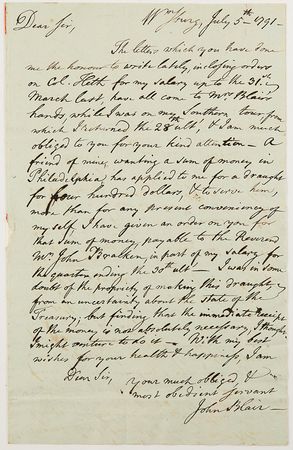 Wmsburg, July 5th 1791 -
Dear Sir,
The letters which you have done
me the honour to write lately, inclosing orders
on Col. Heth for my salary up to the 31st
March last, have all come to Mrs Blair's
hands, while I was on my Southern tour, from
which I returned the 28th ult, & I am much
obliged to you for your kind attention - A
friend of mine, wanting a sum of money in
Philadelphia has applied to me for a draught
for four hundred dollars & to serve him,
more than for any present conveniency of
my self I have given an order on you for
that sum of money, payable to the Reverend
Mr. John Bracken, in part of my salary for
the quarter ending the 30th ult - I was in some
doubt of the propriety of making this Draught,
from an uncertainty about the state of the
Treasury; but finding that the immediate receipt
of the money is not absolutely necessary, I thought
I might venture to do it - With my best
wishes for your health & happiness, I am
Dear Sir,
Your much obliged, &
most obedient servant
John Blair -